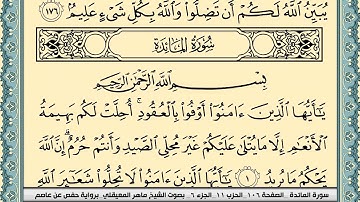 يُبَيِّنُ ٱللَّهُ لَكُمْ أَن تَضِلُّوا۟ وَٱللَّهُ بِكُلِّ شَىْءٍ عَلِيمٌۢ ١٧٦
سُورَةُ المَائِدَةِ
بِسْمِ ٱللَّهِ ٱلرَّحْمَٰنِ ٱلرَّحِيمِ
يَٰٓأَيُّهَا ٱلَّذِينَ ءَامَنُوٓا۟ أَوْفُوا۟ بِٱلْعُقُودِ ۚ أُحِلَّتْ لَكُم بَهِيمَةُ
ٱلْأَنْعَٰمِ إِلَّا مَا يُتْلَىٰ عَلَيْكُمْ غَيْرَ مُحِلِّى ٱلصَّيْدِ وَأَنتُمْ حُرُمٌ ۗ إِنَّ ٱللَّهَ
يَحْكُمُ مَا يُرِيدُ ١ يَٰٓأَيُّهَا ٱلَّذِينَ ءَامَنُوا۟ لَا تُحِلُّوا۟ شَعَٰٓئِرَ ٱللَّهِ
سورة المائدة الصفحة ١٠٦ الحزب ١١ الجزء ٦ بصوت الشيخ ماهر المعيقلي برواية حفص عن عاصم